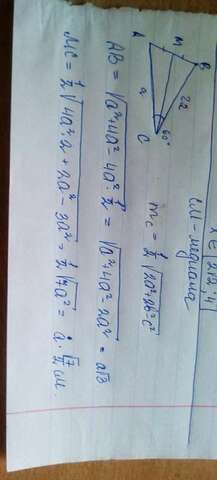 x ∈ [
CM - медиана
A M B
a 2a
60°
C
m_c = 1/2 √(2a²+2b²-c²)
AB = √(a²+4a²-4a²·1/2) = √(a²+4a²-2a²) = a√3
MC = 1/2 √(4a²·a+2a²-3a²) = 1/2 √(7a²) = a·√7/2 см.